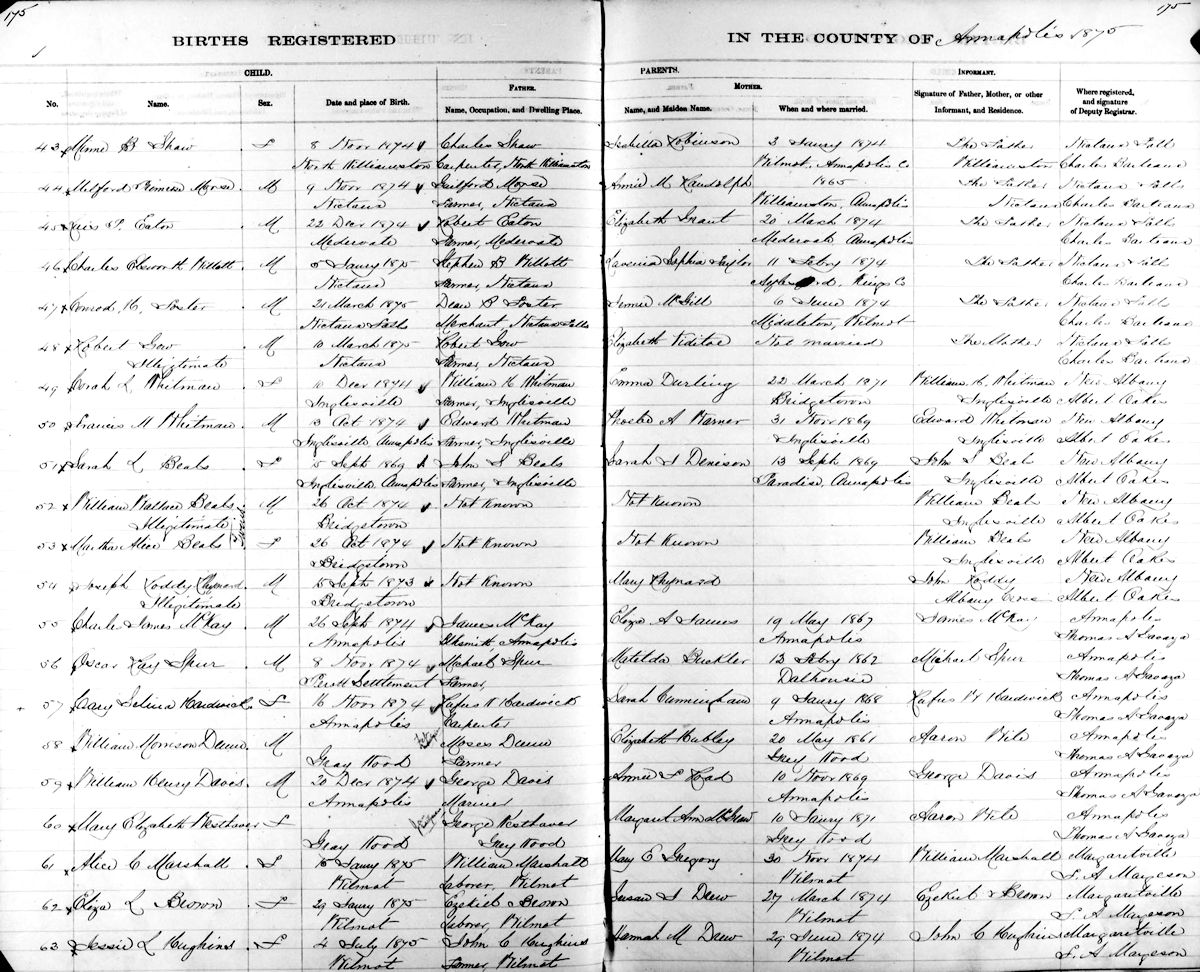 175
175
1
BIRTHS REGISTERED IN THE COUNTY OF Annapolis 1875
CHILD. PARENTS. INFORMANT.
FATHER. MOTHER.
No. Name. Sex. Date and place of Birth. Name, Occupation, and Dwelling Place. Name, and Maiden Name. When and where married. Signature of Father, Mother, or other Informant, and Residence. Where registered, and signature of Deputy Registrar.
43 Minnie B Shaw F 8 Novr 1874 Charles Shaw Isabella Robinson 3 Jany 1874 The Father Nictaux Falls
North Williamston Carpenter, North Williamston Wilmot, Annapolis Co Williamston Charles Barteaux
44 Milford Morse M 9 Novr 1874 Guilford Morse Annie M Randolph 1865 The Father Nictaux Falls
Nictaux Farmer, Nictaux Williamston, Annapolis Nictaux Charles Barteaux
45 P. Eaton M 22 Decr 1874 Robert Eaton Elizabeth Grant 20 March 1874 The Father Nictaux Falls
Farmer, Annapolis Charles Barteaux
46 Charles Elsworth Willott M 5 Jany 1875 Stephen B Willott Lavenia Sophia Taylor 11 Febry 1874 The Father Nictaux Falls
Nictaux Farmer, Nictaux Kings Co Charles Barteaux
47 Foster M 21 March 1875 Dean B Foster Jennie McGill 6 June 1874 The Father Nictaux Falls
Nictaux Falls Merchant, Nictaux Falls Middleton, Wilmot Charles Barteaux
48 Robert Gow M 10 March 1875 Robert Gow Elizabeth Viditoe Not married The Mother Nictaux Falls
Illegitimate Nictaux Farmer, Nictaux Charles Barteaux
49 Sarah L Whitman F 10 Decr 1874 William H Whitman Emma Durling 22 March 1871 William H. Whitman New Albany
Inglisville Farmer, Inglisville Bridgetown Inglisville Albert Oakes
50 Francis M Whitman M 13 Oct 1874 Edward Whitman Phoebe A Warner 31 Novr 1869 Edward Whitman New Albany
Inglisville Annapolis Farmer, Inglisville Inglisville Inglisville Albert Oakes
51 Sarah L Beals F 15 Sept 1869 John S Beals Sarah S Denison 13 Sept 1869 John S Beals New Albany
Inglisville Annapolis Farmer, Inglisville Paradise, Annapolis Inglisville Albert Oakes
52 William Wallace Beals M 26 Oct 1874 Not Known Not Known William Beals New Albany
Illegitimate Twins Bridgetown Inglisville Albert Oakes
53 Martha Alice Beals F 26 Oct 1874 Not Known Not Known William Beals New Albany
Bridgetown Inglisville Albert Oakes
54 Joseph Roddy Whynard M 15 Sept 1873 Not Known Mary Whynard John Roddy New Albany
Illegitimate Bridgetown Albany Cross Albert Oakes
55 Charles James McKay M 26 Sept 1874 James McKay Eliza A James 19 May 1867 James McKay Annapolis
Annapolis Blksmith Annapolis Annapolis Thomas A Gavaza
56 Oscar Ray Spur M 8 Novr 1874 Michael Spur Matilda Buckler 13 Febry 1862 Michael Spur Annapolis
Perott Settlement Farmer, Dalhousie Thomas A Gavaza
57 Selina Hardwick F 16 Novr 1874 Rufus W Hardwick Sarah Cunningham 9 Jany 1868 Rufus W Hardwick Annapolis
Annapolis Carpenter Annapolis Thomas A Gavaza
58 William Morrison M Moses Elizabeth Hubley 20 May 1861 Aaron Wile Annapolis
Gray Wood Farmer Grey Wood Thomas A Gavaza
59 William Henry Davis M 20 Decr 1874 George Davis Annie F Hoad 10 Novr 1869 George Davis Annapolis
Annapolis Mariner Annapolis Thomas A Gavaza
60 Mary Elizabeth Westhaver F George Westhaver Margaret Ann 10 Jany 1871 Aaron Wile Annapolis
Gray Wood Grey Wood Grey Wood Thomas A Gavaza
61 Alice C Marshall F 15 Jany 1875 William Marshall Mary E Gregory 30 Novr 1874 William Marshall Margaretville
Wilmot Laborer, Wilmot Wilmot S. A Margeson
62 Eliza L Brown F 29 Jany 1875 Ezekiel Brown Susan S Drew 27 March 1874 Ezekiel Brown Margaretville
Wilmot Laborer, Wilmot Wilmot S. A Margeson
63 Jessie L Hughins F 4 July 1875 John C Hughins Hannah M Drew 29 June 1874 John C Hughins Margaretville
Wilmot Farmer, Wilmot Wilmot S. A Margeson